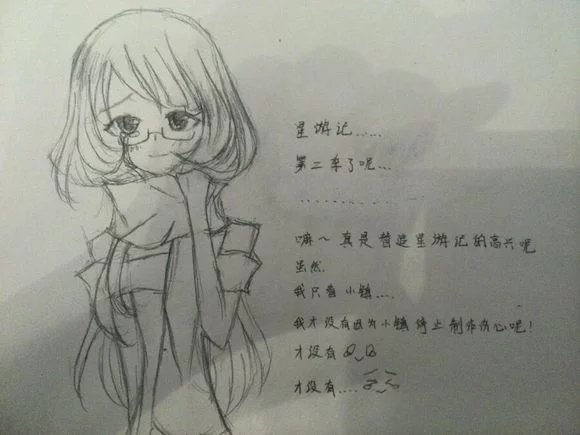 星游记......
第二季了呢...
..........
嘛～真是替这星游记的高兴呢
虽然.
我只看小镇....
我才没有因为小镇停止制作伤心呢!
才没有
才没有....